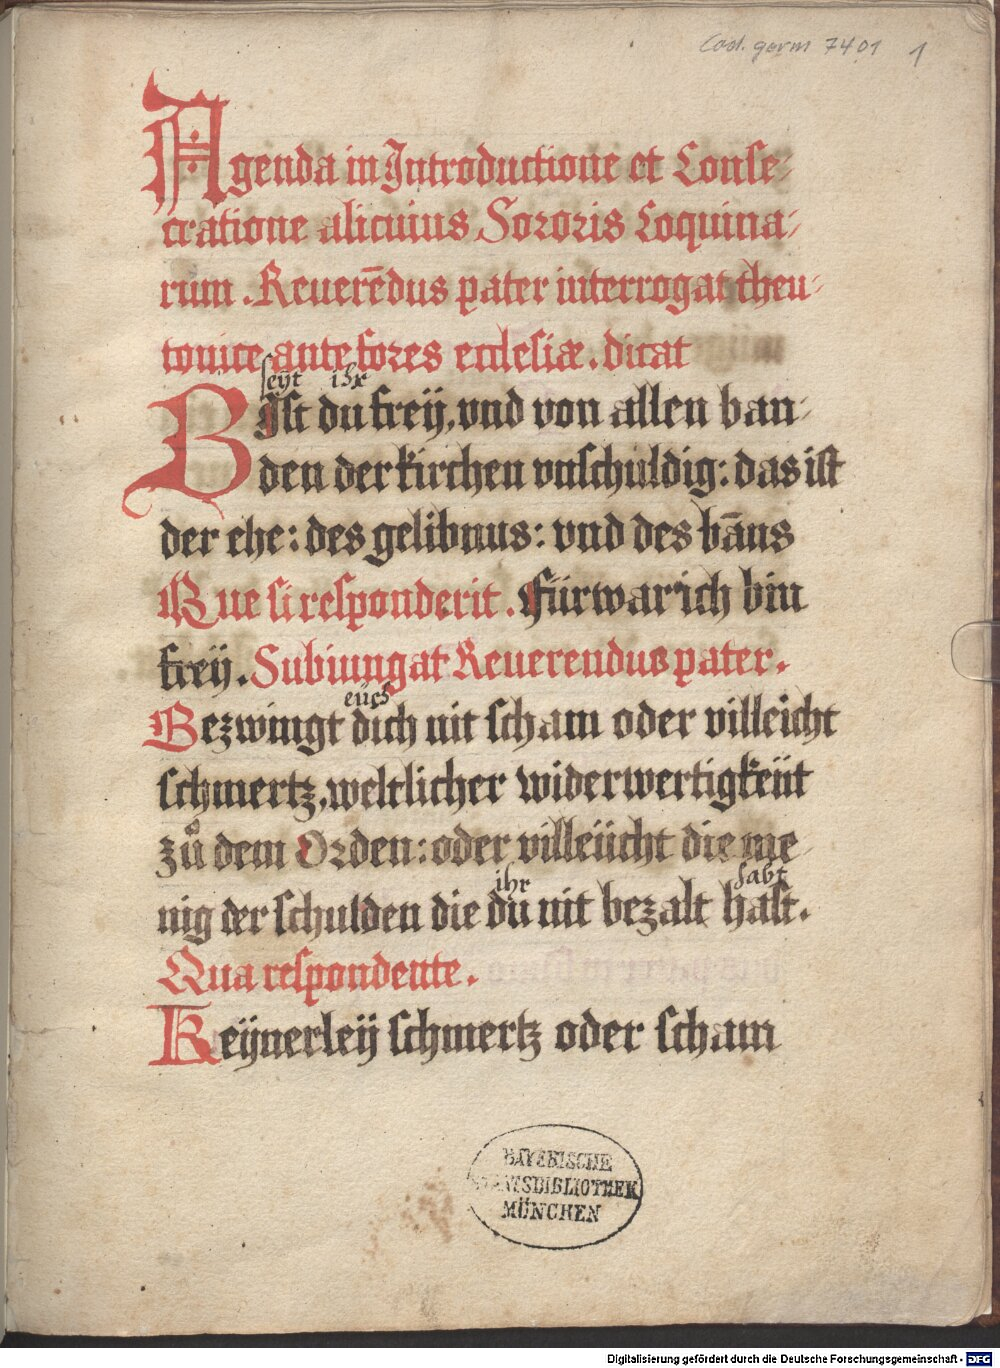 Cod. germ 7401 1
Agenda in Introductione et Conse⸗
cratione alicuius Sororis Coquina⸗
rum. Reuerēdus pater interrogat theu⸗
tonice ante fores ecclesiæ. dicat
seyt ihr
Bist du freÿ, vnd von allen ban⸗
den der kirchen vnschuldig: das ist
der ehe: des gelibnus: vnd des bāns
Que si responderit. Fürwar ich bin
freÿ. Subiungat Reuerendus pater.
eücs
Bezwingt dich nit scham oder villeicht
schmertz, weltlicher widerwertigkeÿt
zů dem Orden: oder villeÿcht die me⸗
ihr habt
nig der schulden die du nit bezalt hast.
Qua respondente.
Keÿnerleÿ schmertz oder scham
BAYERISCHE
STAATSBIBLIOTHEK
MÜNCHEN
Digitalisierung gefördert durch die Deutsche Forschungsgemeinschaft - DFG